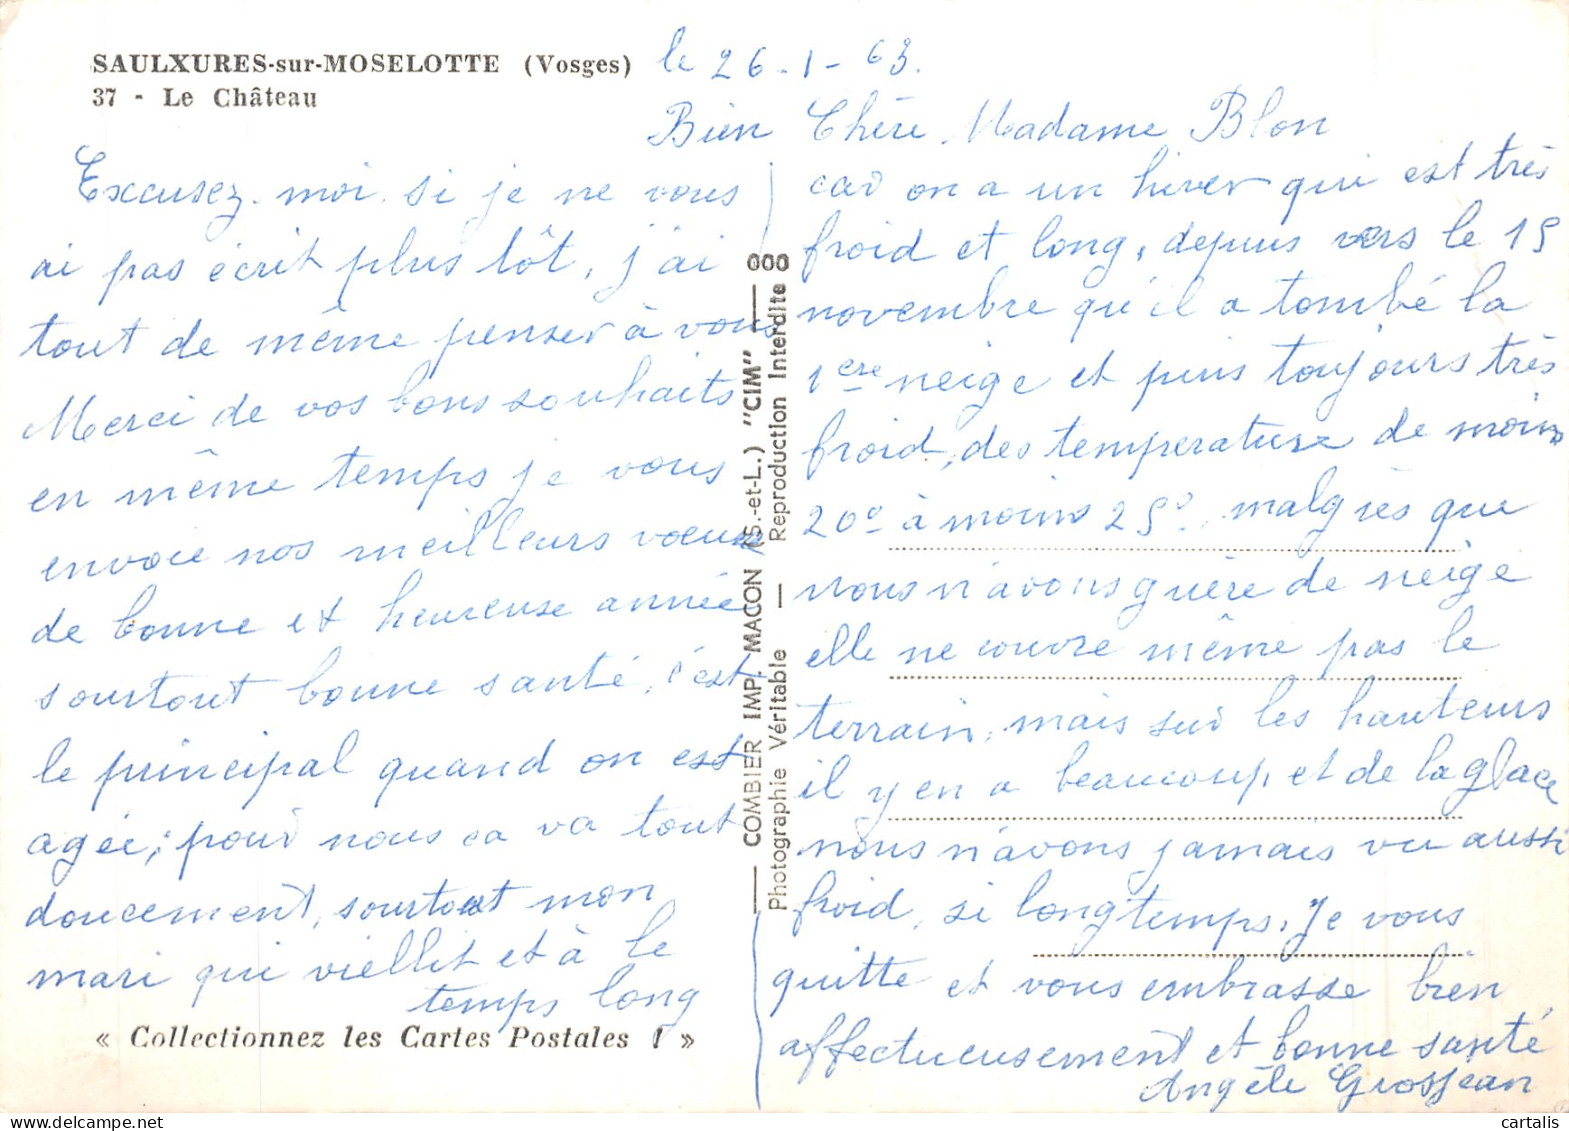 SAULXURES-sur-MOSELOTTE (Vosges)
37 - Le Château
le 26-1-63.
Bien Chère Madame Blon
Excusez-moi si je ne vous
ai pas écrit plus tôt, j'ai
tout de même penser à vous
Merci de vos bons souhaits
en même temps je vous
envoie nos meilleurs vœux
de bonne et heureuse année
sourtout bonne santé, c'est
le principal quand on est
agée; pour nous ca va tout
doucement, sourtout mon
mari qui viellit et à le
temps long
« Collectionnez les Cartes Postales ! »
COMBIER IMP. MACON (S.-et-L.) "CIM" 000
Photographie Véritable — Reproduction Interdite
car on a un hiver qui est très
froid et long, depuis vers le 15
novembre qu'il a tombé la
1ere neige et puis toujours très
froid, des temperature de moins
20° à moins 25°, malgrès que
nous n'avons guère de neige
elle ne couvre même pas le
terrain, mais sur les hauteurs
il y en a beaucoup, et de la glace
nous n'avons jamais vu aussi
froid, si longtemps. Je vous
quitte et vous embrasse bien
affectueusement et bonne santé
Angèle Grosjean
cartalis